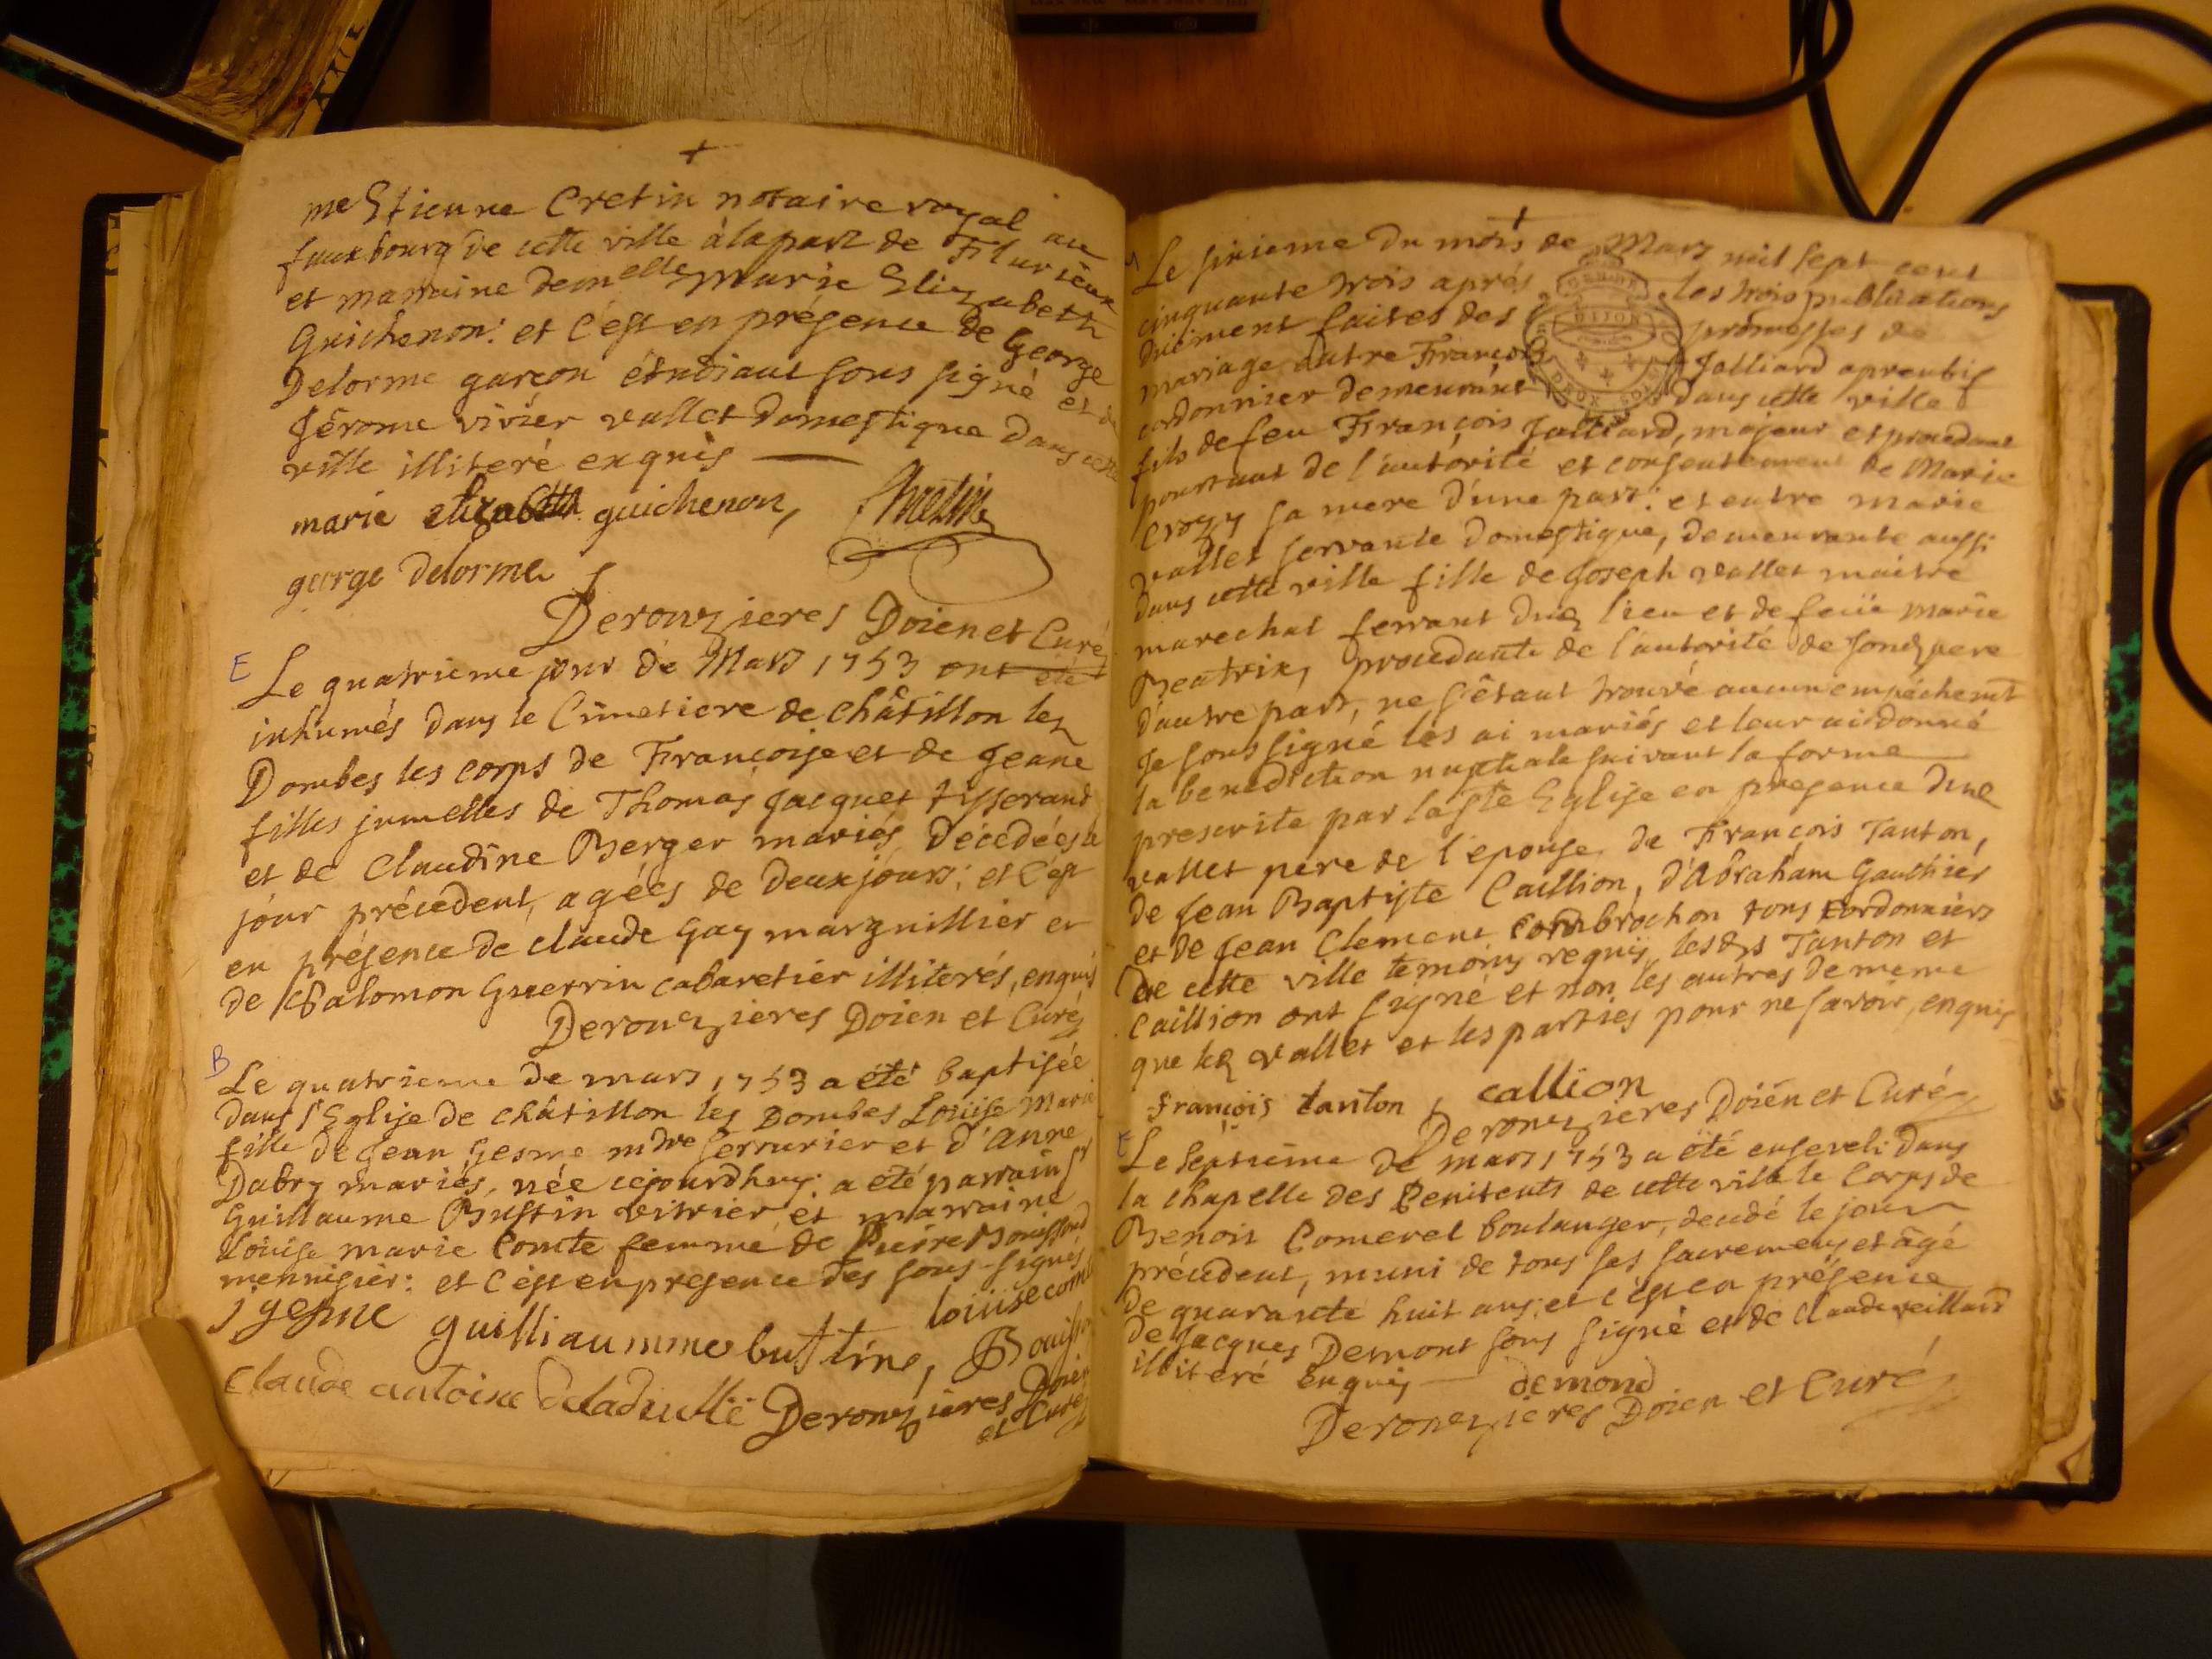 me Etienne Cretin notaire royal au
fauxbourg de cette ville à la part de Flurieux
et marraine demelle Marie Elizabeth
Guichenon: et c'est en présence de George
Delorme garçon étudiant sous signé et de
Jérome vivier vallet domestique dans cette
ville illiteré enquis
marie elizabeth guichenon,
george delorme
Derouzieres Doien et Curé
E
Le quatrieme jour de Mars 1753 ont été
inhumés dans le Cimetiere de châtillon lez
Dombes les corps de Françoise et de Jeane
filles jumelles de Thomas Jacquet tisserand
et de Claudine Berger mariés, décédées le
jour précedent, agées de deux jours; et c'est
en présence de claude Gay marguillier et
de Chalomon Guerrin cabaretier illiterés, enquis
Derouzieres Doien et Curé
B
Le quatrieme de mars 1753 a été baptisée
dans l'Eglise de châtillon les Dombes Loüise Marie
fille de Jean Gesme mtre serrurier et d'anne
Dabry mariés, née cejourdhuy; a été parrain sr
Guillaume Bustin vitrier et marraine
Loüise marie Comte femme de Pierre
mennisier: et c'est en presence des sous-signés
j gesme
guilliaumme bustino,
loiiise com
claude antoine
Derouzieres Doien
et Curé
Le sixieme du mois de Mars mil sept cent
cinquante trois aprés les trois publications
düement faites des promesses de
mariage entre François Jalliard aprentif
cordonnier demeurant dans cette ville
fils de feu François Jalliard, majeur et procedant
pourtant de l'autorité et consentement de Marie
Crozy sa mere d'une part: et entre marie
vallet servante domestique, demeurante aussi
dans cette ville fille de Joseph vallet maitre
marechal ferrant dud lieu et de feüe marie
Beatrix, procedante de l'autorité de sond pere
d'autre part, ne s'étant trouvé aucun empéchemt
Je sous signé les ai mariés et leur ai donné
la benediction nuptiale suivant la forme
prescrite par la ste Eglise en presence dud
vallet pere de l'epouse, de François Tanton,
de Jean Baptiste Caillion, d'Abraham Gauthier
et de Jean Clement Combrochon tous cordonniers
de cette ville temoins requis, lesds Tanton et
Caillion ont signé et non les autres de meme
que led vallet et les parties pour ne savoir, enquis
françois tanton, callion
Derouzieres Doien et Curé
E
Le septieme de mars 1753 a été enseveli dans
la chapelle des Penitents de cette ville le corps de
Benoit Comerel boulanger, decedé le jour
précedent, muni de tous ses sacremens et âgé
de quarante huit ans; et c'est en présence
de Jacques Demont sous signé et de Claude veillard
illiteré enquis demond
Derouzieres Doien et Curé
DIJON
DEUX SOLS